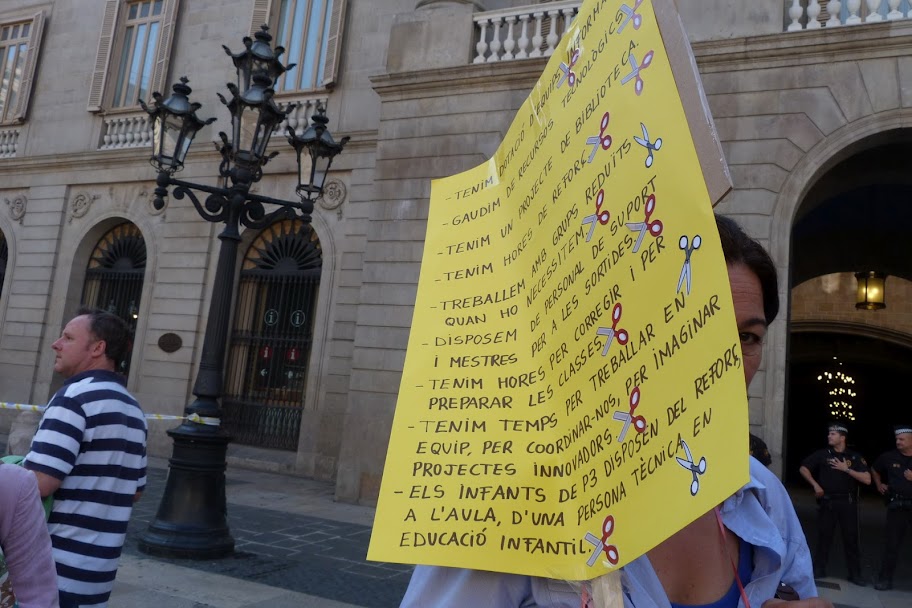 - TENIM DOTACIÓ D'EQUIPS INFORMÀ
- GAUDIM DE RECURSOS TECNOLÒGICS
- TENIM UN PROJECTE DE BIBLIOTECA.
- TENIM HORES DE REFORÇ
- TREBALLEM AMB GRUPS REDUÏTS
QUAN HO NECESSITEM
- DISPOSEM DE PERSONAL DE SUPORT
I MESTRES PER A LES SORTIDES
- TENIM HORES PER CORREGIR I PER
PREPARAR LES CLASSES
- TENIM TEMPS PER TREBALLAR EN
EQUIP, PER COORDINAR-NOS, PER IMAGINAR
PROJECTES INNOVADORS
- ELS INFANTS DE P3 DISPOSEN DEL REFORÇ,
A L'AULA, D'UNA PERSONA TÈCNICA EN
EDUCACIÓ INFANTIL.